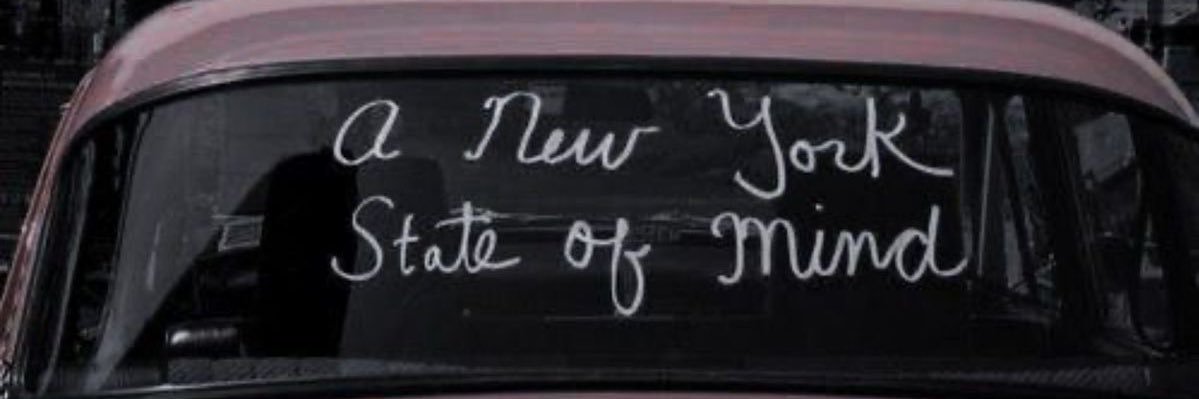 A New York
State of Mind